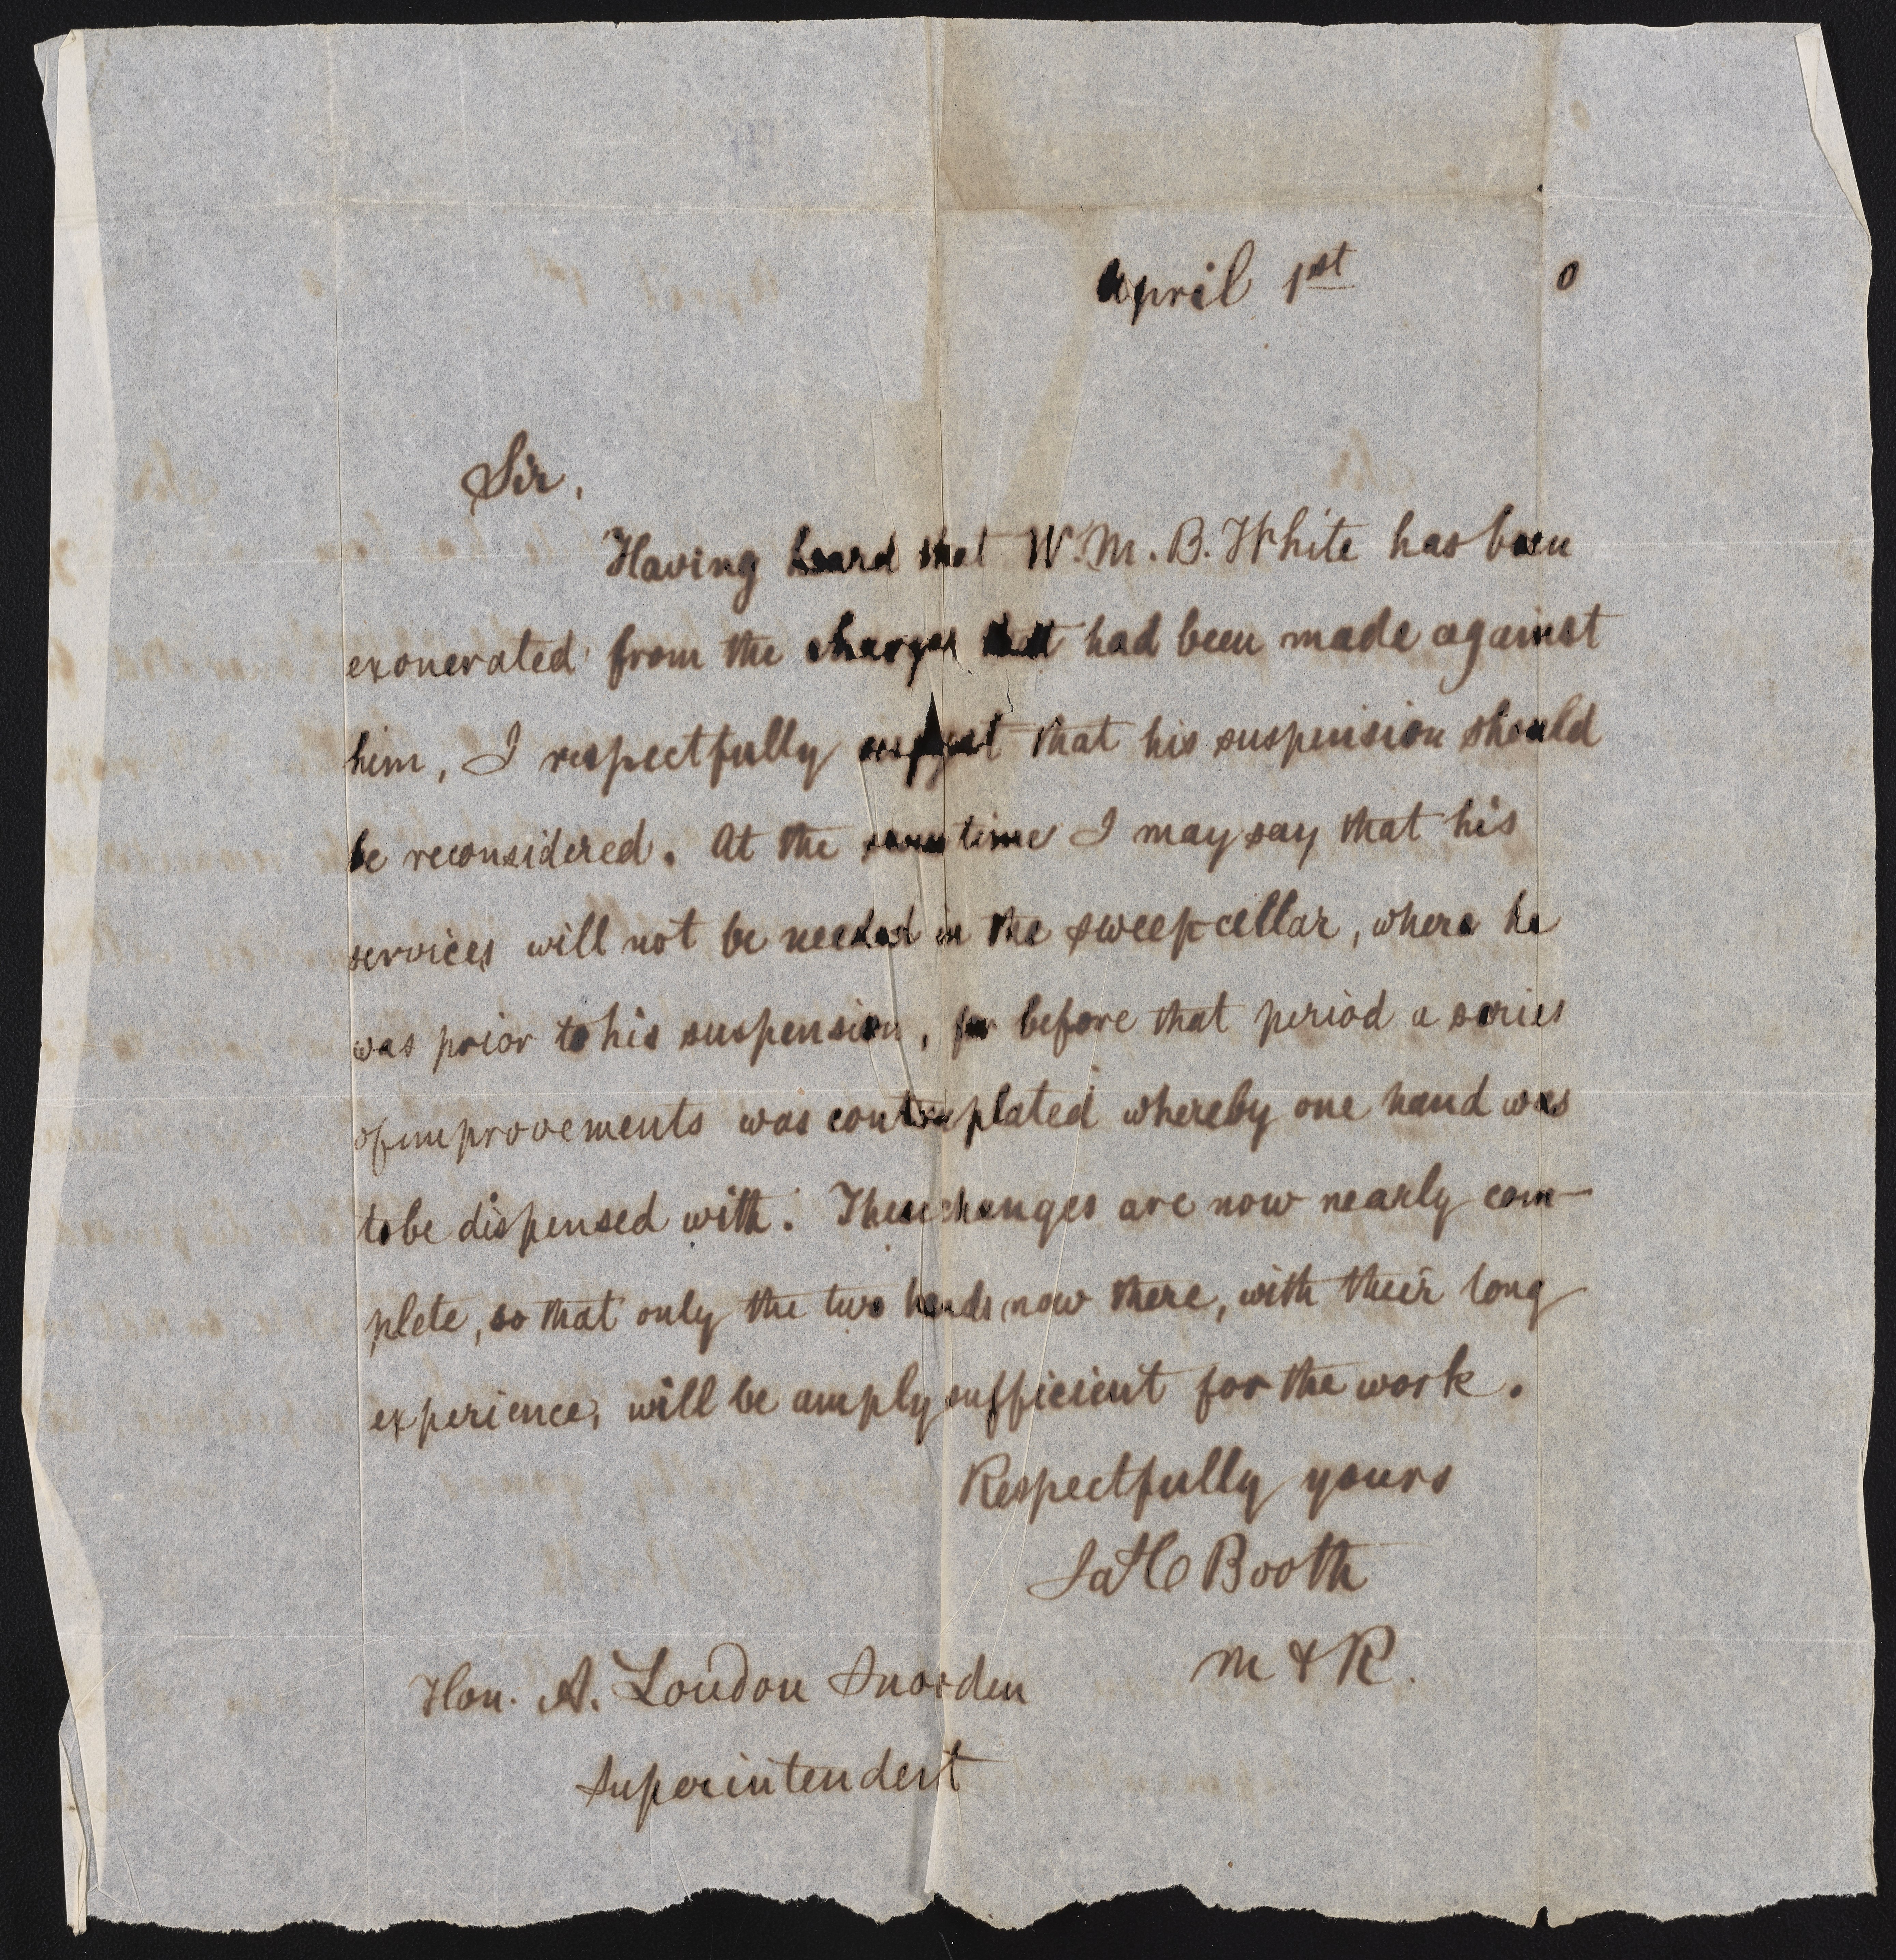 April 1st 0
Sir,
Having heard that W. M. B. White has been
exonerated from the charges that had been made against
him, I respectfully suggest that his suspension should
be reconsidered. At the same time I may say that his
services will not be needed in the sweep cellar, where he
was prior to his suspension, for before that period a series
of improvements was contemplated whereby one hand was
to be dispensed with. These changes are now nearly com-
plete, so that only the two hands now there, with their long
experience, will be amply sufficient for the work.
Respectfully yours
Jas C Booth
M & R.
Hon. A. Loudon Snowden
Superintendent